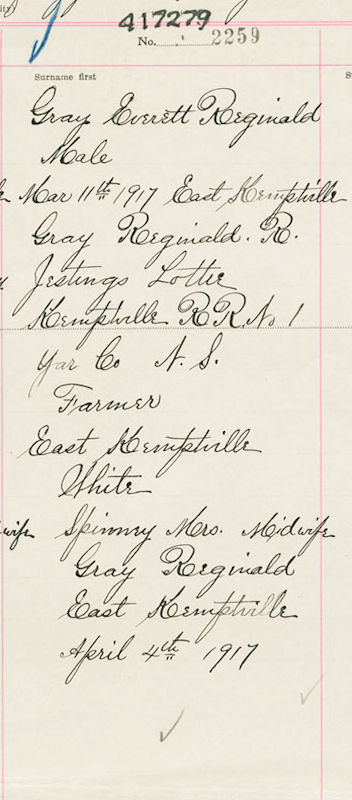 417279
No. 2259
Surname first
Gray Everett Reginald
Male
Mar 11th 1917 East Kemptville
Gray Reginald. R.
Jestings Lottie
Kemptville R.R. No 1
Yar Co N. S.
Farmer
East Kemptville
White
Spinney Mrs. Midwife
Gray Reginald
East Kemptville
April 4th 1917